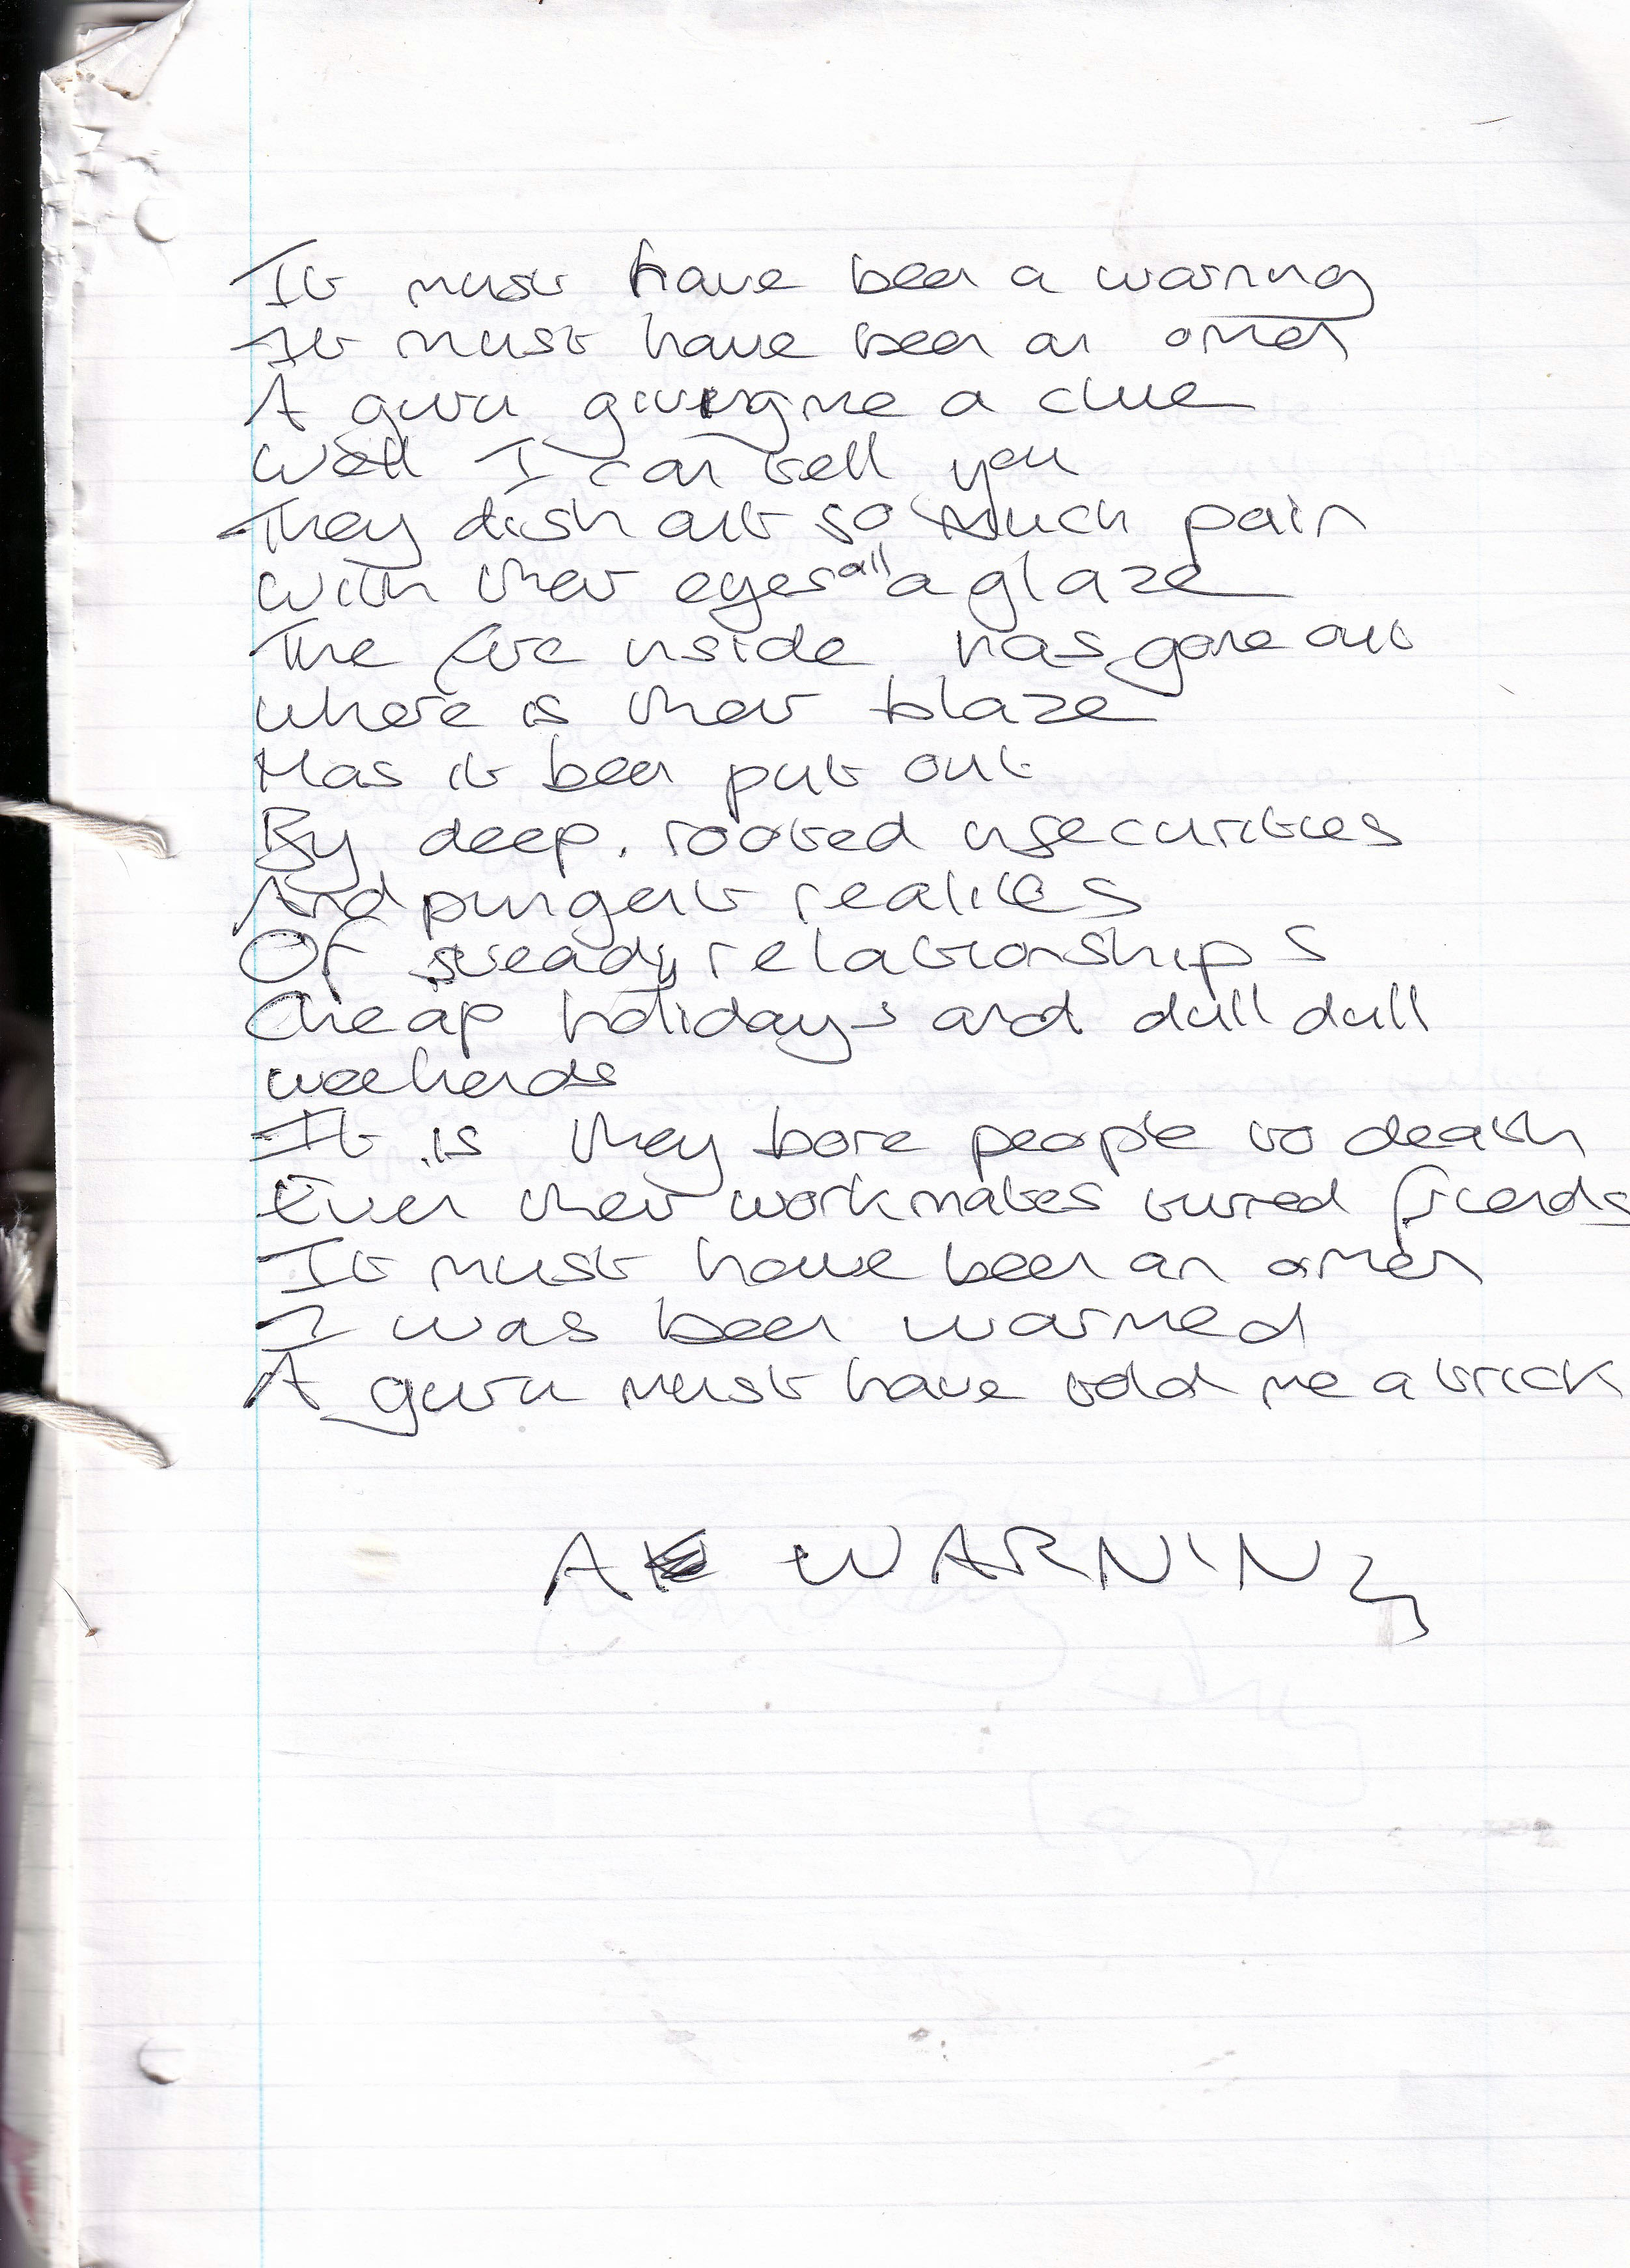 It must have been a warning
It must have been an omen
A guru giving me a clue
Well I can tell you
They dish out so much pain
With their eyes all a glaze
The fire inside has gone out
Where is their blaze
Has it been put out
By deep. rooted insecurities
And pungent realities
Of steady relationships
Cheap holidays and dull dull
weekends
It is they bore people to death
Even their workmates turned friends
It must have been an omen
I was been warned
A guru must have told me a trick
A WARNING